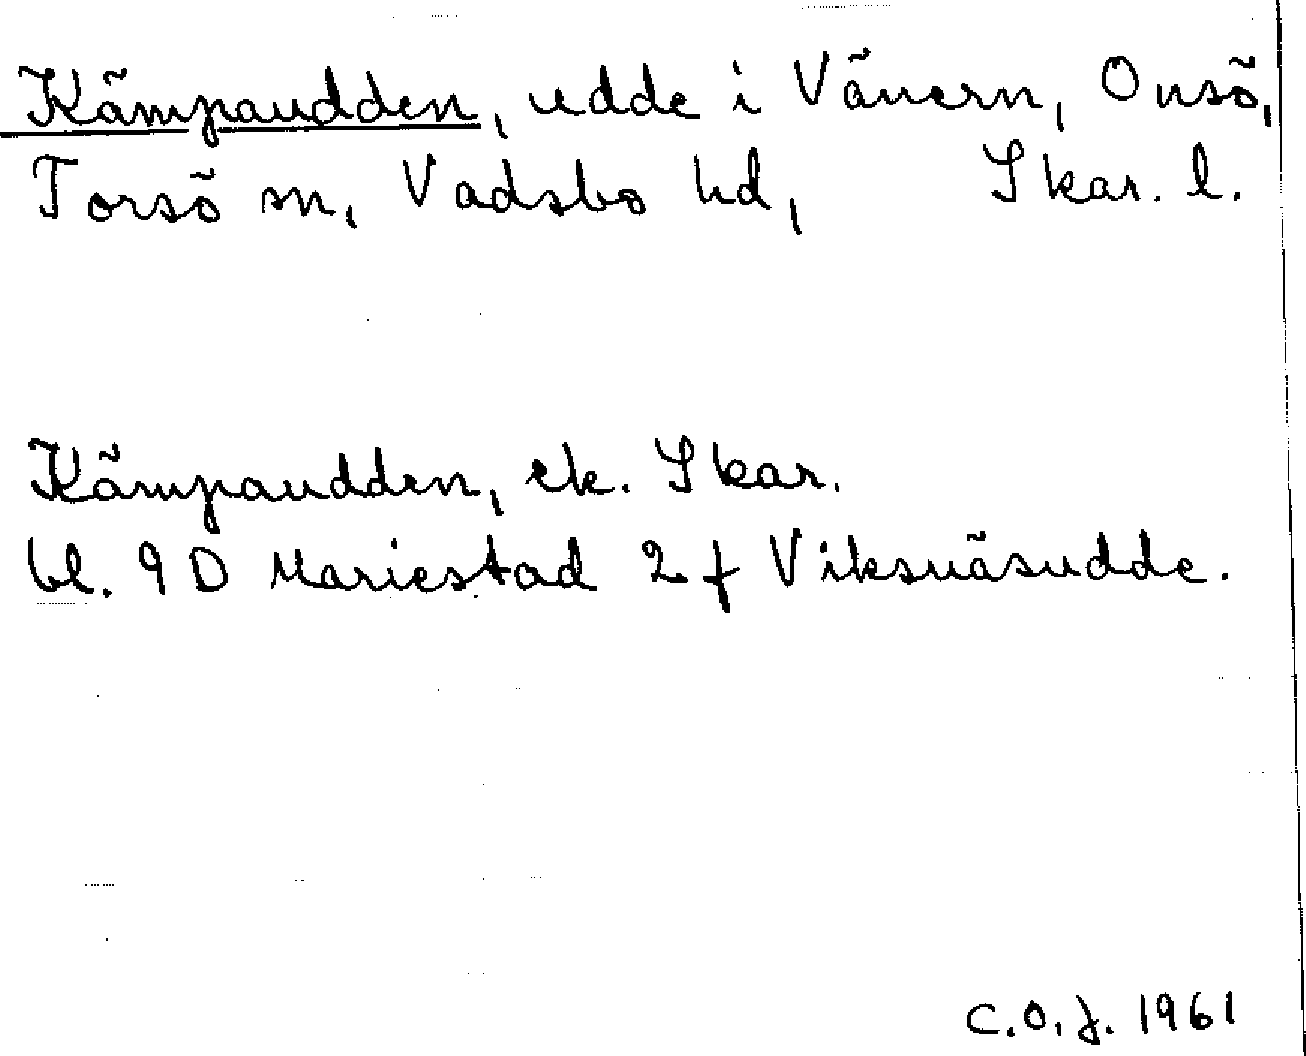 Kämpaudden, udde i Vänern, Onsö,
Torsö sn, Vadsbo hd, Skar. l.
Kämpaudden, ek. Skar.
bl. 9 D Mariestad 2 f Viksnäsudde.
C.O.J. 1961